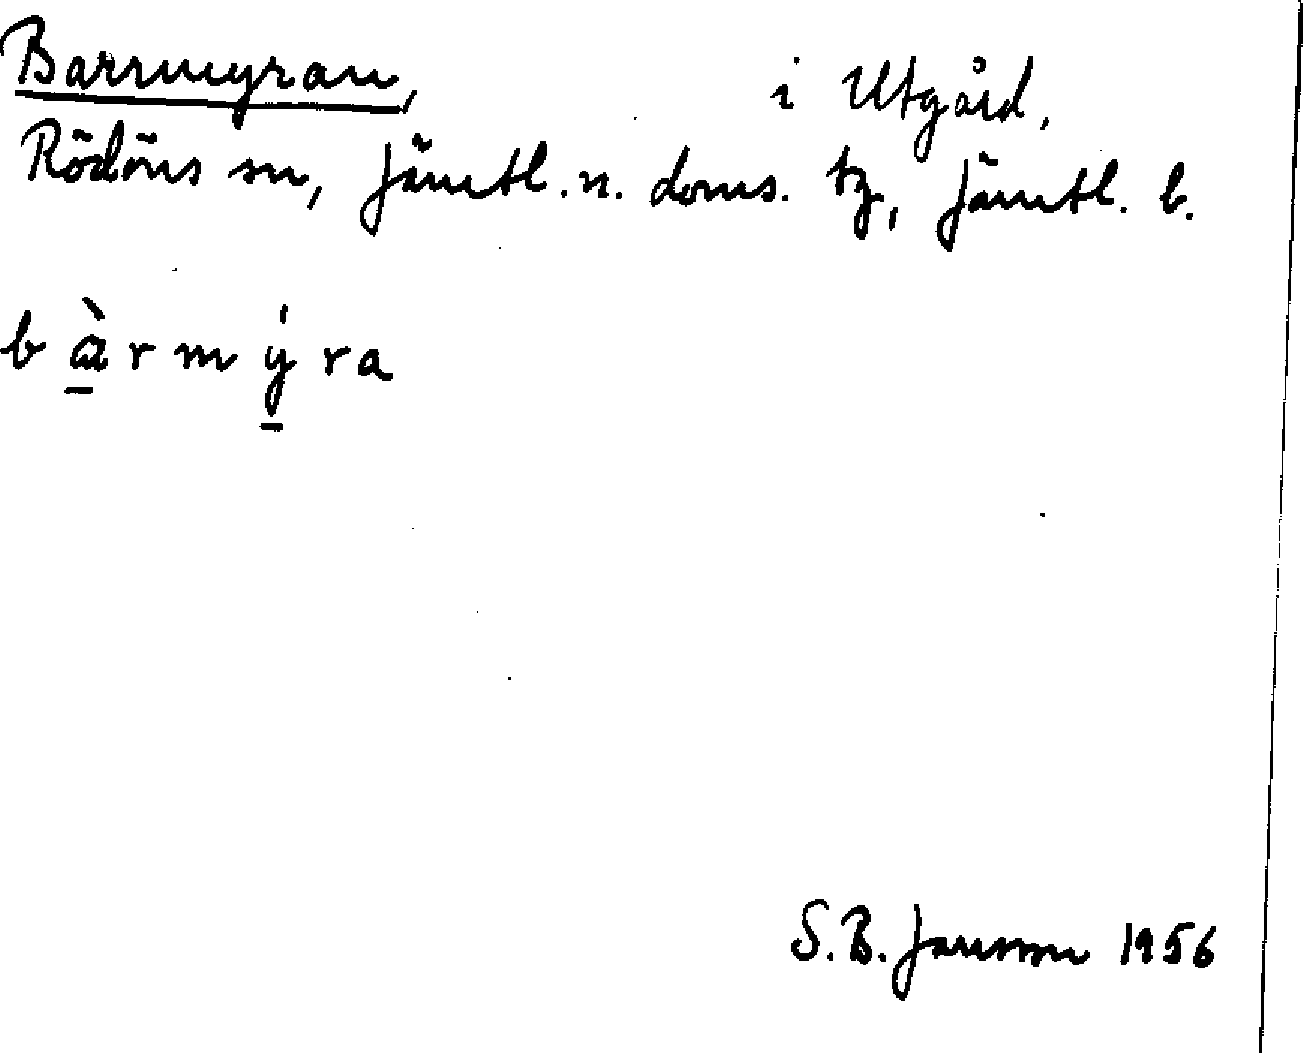 Barrmyran, i Utgård,
Rödöns sn, Jämtl. n. doms. tg, Jämtl. l.
b æ̠̀ r m ý̠ r a
S. B. Jansson 1956